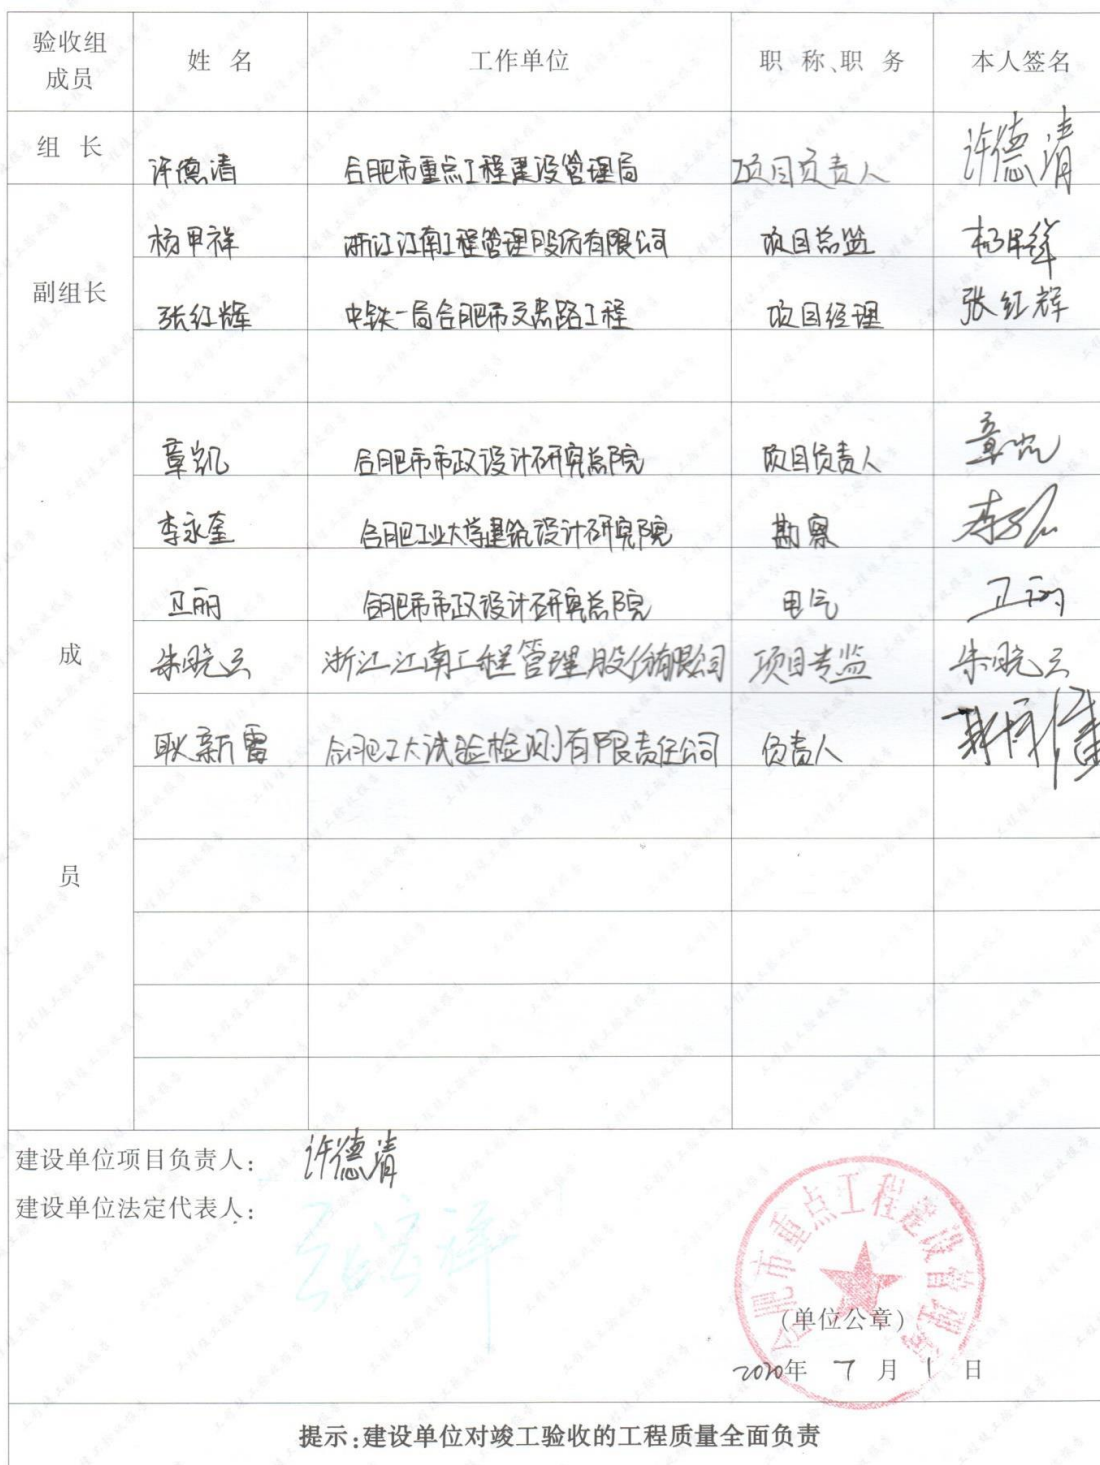 验收组成员 姓 名 工作单位 职 称、职 务 本人签名
组 长 许德清 合肥市重点工程建设管理局 项目负责人 许德清
副组长 杨甲祥 浙江江南工程管理股份有限公司 项目总监 杨甲祥
张红辉 中铁一局合肥市文忠路工程 项目经理 张红辉
成员
章凯 合肥市市政设计研究总院 项目负责人 章凯
李永奎 合肥工业大学建筑设计研究院 勘察
卫丽 合肥市市政设计研究总院 电气 卫丽
朱晓云 浙江江南工程管理股份有限公司 项目专监 朱晓云
耿新雷 合肥工大试验检测有限责任公司 负责人
建设单位项目负责人: 许德清
建设单位法定代表人:
合肥市重点工程建设管理局
(单位公章)
2020年 7 月 1 日
提示:建设单位对竣工验收的工程质量全面负责